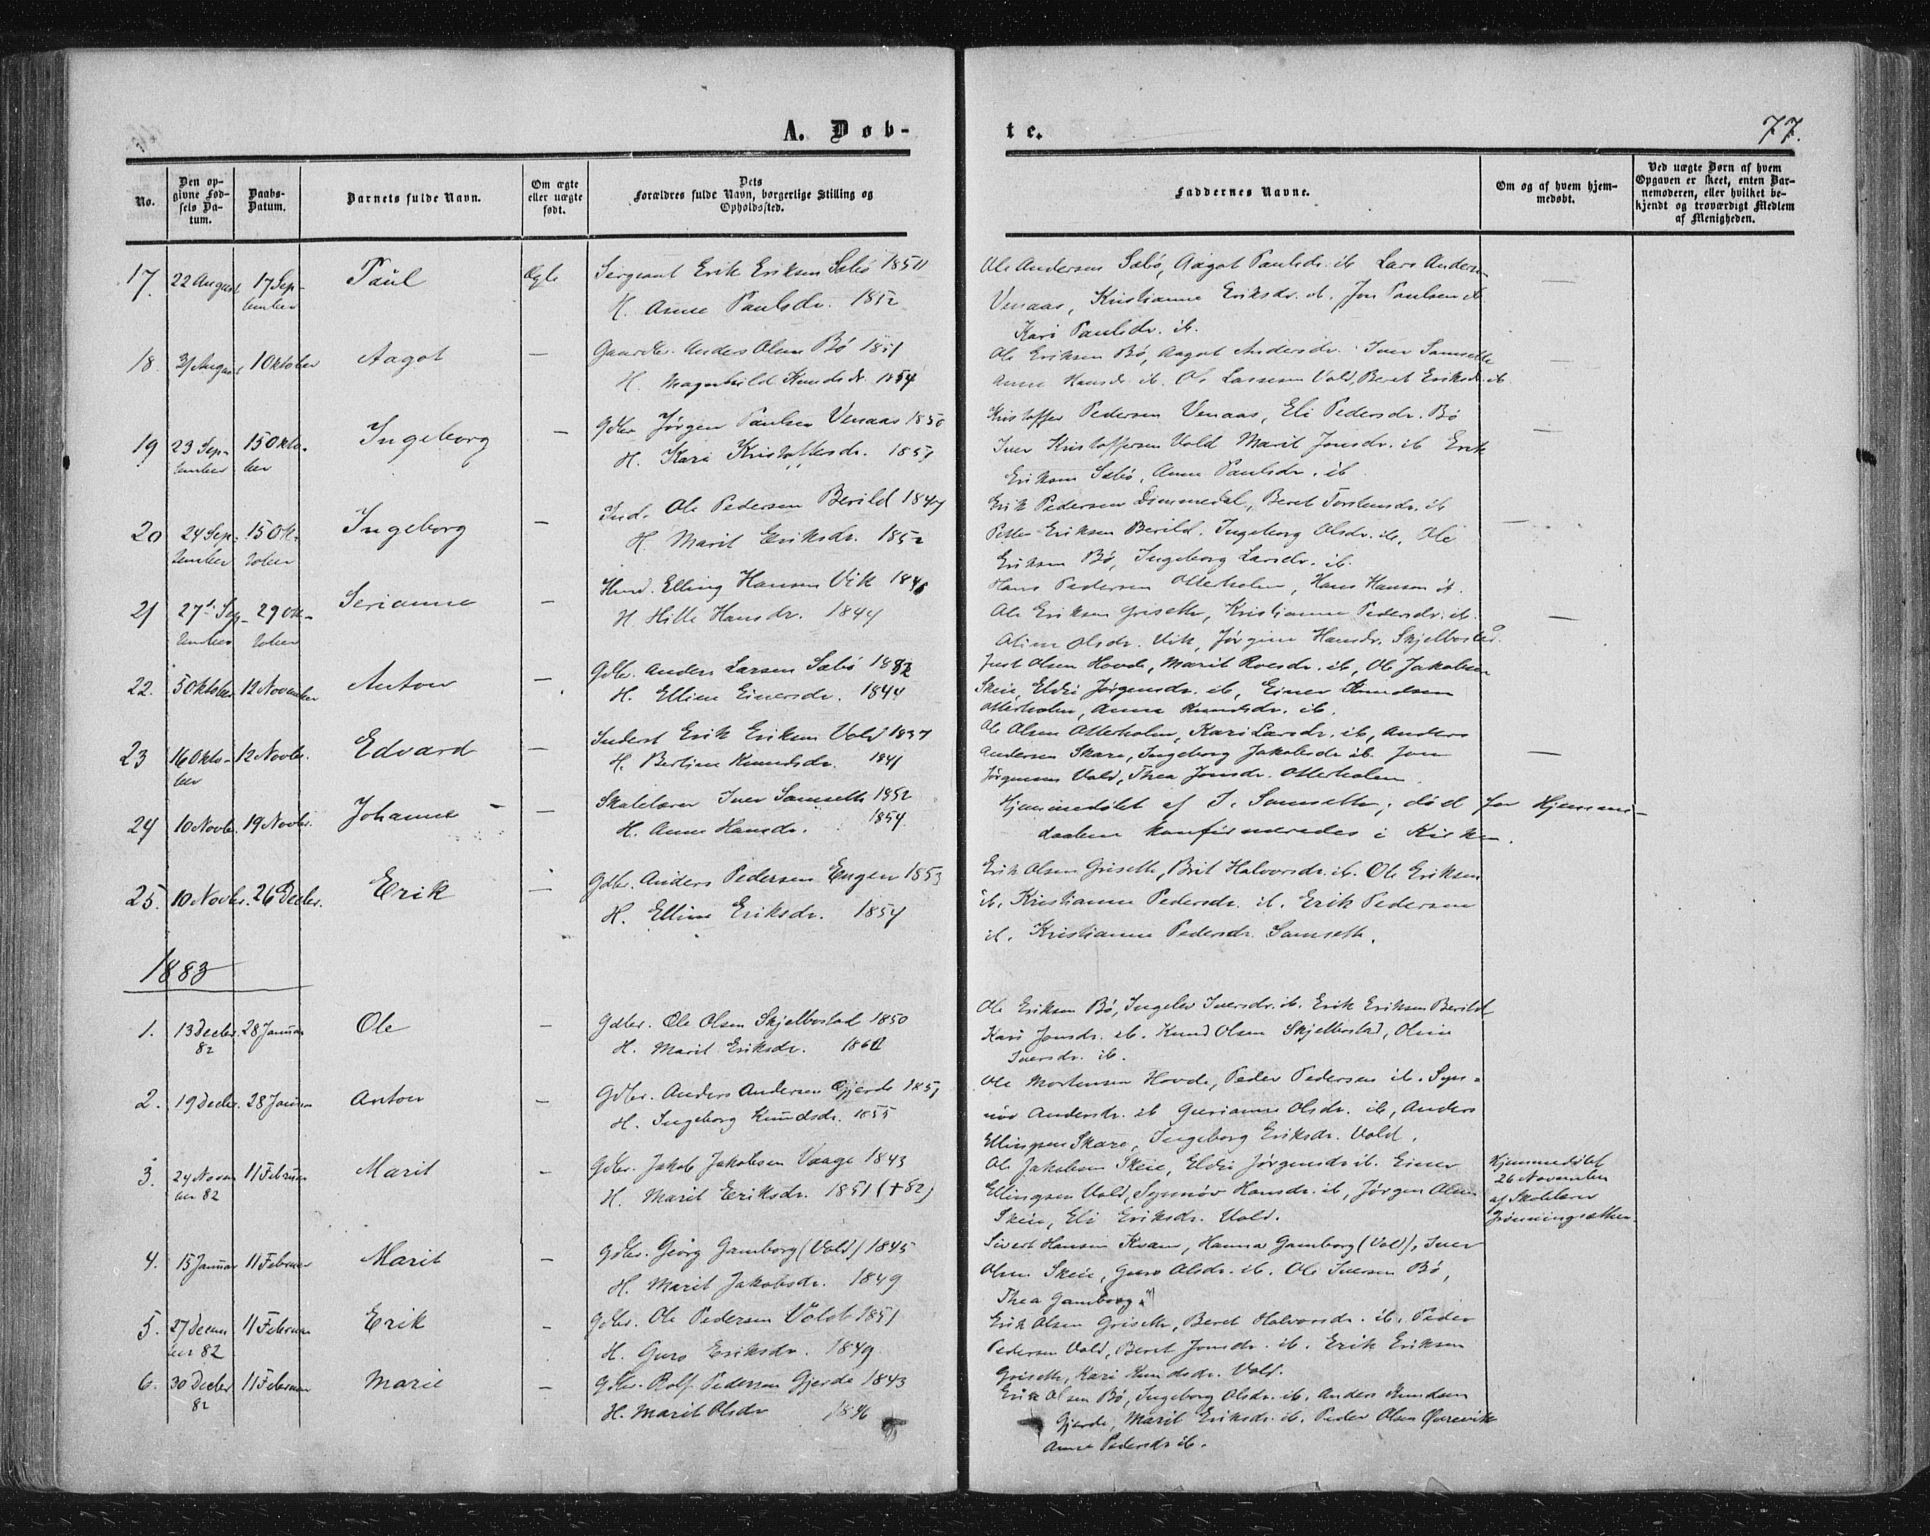 A. Døb-
te.
77.
No.
Den op-
givne Fød-
sels Da-
tum.
Daabs-
Datum.
Barnets fulde Navn.
Om ægte
eller uægte
født.
Dets
Forældres fulde Navn, borgerlige Stilling og
Opholdssted.
Faddernes Navne.
Om og af hvem hjem-
medøbt.
Ved uægte Børn af hvem
Opgaven er skeet, enten Bar-
nemoderen, eller hvilket be-
kjendt og troværdigt Medlem
af Menigheden.
17. 22 August 17 Sep- Paul Ægte Sergeant Erik Eriksen Sæbø
tember H. Anne Paulsdr. 1852
Ole Andersen Sæbø, Aagot Paulsdr. ib. Lars Andersen
Venaas, Kristianne Eriksdr. ib. Jon Paulsen ib.
Kari Paulsdr. ib.
18. 31 August 10ktober Aagot — Gaardbr. Anders Olsen Bø 1851
H. Magnhild Knudsdr. 1854
Ole Eriksen Bø, Aagot Andersdr. Iver Samseth
Anne Hansdr ib. Ole Larssen Vold, Beret Eriksdr. ib
19 23 Sep- 15 Okto- Ingeborg — Gdbr. Jørgen Paulsen Venaas 1850
tember ber H. Kari Kristoffersdr. 1851
Kristoffer Pedersen Venaas, Eli Pedersdr. Bø
Iver Kristoffersen Vold Marit Jonsdr. ib Erik
Eriksen Sæbø, Anne Paulsdr. ib.
20 24 Sep- 15 Ok- Ingeborg — Ind. Ole Pedersen Berild
tember tober H. Marit Eriksdr. 1852
Erik Pedersen Dimmedal, Beret Torstensdr. ib
Peter Eriksen Berild, Ingeborg Olsdr. ib, Ole
Eriksen Bø, Ingeborg Larsdr. ib.
21 27 Sep- 29 Ok- Serianne — Elling Hansen Vik
tember tober H. Hilde Hansdr. 1844
Hans Pedersen Otterholm, Hans Hansen ib.
Ole Eriksen Griseth, Kristianne Pedersdr. ib.
Oline Olsdr. Vik, Jørgine Hansdr. Skjelbostad.
22. 5 Oktober 12 November Anton — Gdbr. Anders Larsen Sæbø
H. Elline Einersdr. 1844
Just Olsen Hovde, Marit Roesdr. ib, Ole Jakobsen
Skeie, Eldri Jørgensdr. ib, Einer Knudsen
Otterholm, Anna Knudsdr. ib.
23 16 Okto- 12 Novbr. Edvard — Inderst Erik Eriksen Vold 1837
ber H. Bertine Knudsdr. 1841
Ole Olsen Otterholm, Kari Larsdr. ib, Anders
Andersen Skare, Ingeborg Jakobsdr ib. Jon
Jørgensen Vold, Thea Jonsdr. Otterholm.
24 10 Novbr. 19 Novbr. Johanne — Skolelærer Iver Samseth 1852
H. Anne Hansdr. 1854.
Hjemmedøbt af I. Samseth; død før Hjemme-
daaben konfirmeredes i Kirken.
25. 10 Novbr. 26 Decbr. Erik — Gdbr. Anders Pedersen Engen 1853
H. Elline Eriksdr. 1854
Erik Olsen Griseth, Brit Halvorsdr. ib. Ole Eriksen
ib. Kristianne Pedersdr. ib. Erik Pedersen
ib. Kristianne Pedersdr. Samseth.
1883
1. 13 Decbr. 28 Januar Ole — Gdbr. Ole Olsen Skjelbostad 1850
82 H. Marit Eriksdr.
Ole Eriksen Bø, Ingeborg Iversdr. ib. Erik Eriksen Berild
Kari Jonsdr. ib. Knud Olsen Skjelbostad, Oline
Iversdr. ib.
2. 19 Decbr. 28 Januar Anton — Gdbr. Anders Andersen Gjerde 1851
H. Ingeborg Knudsdr. 1855
Ole Mortensen Hovde, Peder Pedersen ib. Syn-
nøv Andersdr. ib Gurianne Olsdr. ib, Anders
Ellingsen Skare, Ingeborg Eriksdr. Vold.
3. 24 Novem 11 Februar Marit — Gdbr. Jakob Jakobsen Vaage 1843
ber 82 H. Marit Eriksdr. 1851 (+82)
Ole Jakobsen Skeie, Eldri Jørgensdr ib. Einer
Ellingsen Vold, Synnøv Hansdr. ib, Jørgen Olsen
Skeie, Eli Eriksdr. Vold.
Hjemmedøbt
26 November
af Skolelærer
Grønningsæther
4. 15 Januar 11 Februar Marit — Gdbr. Georg Gamborg (Vold) 1845
H. Marit Jakobsdr. 1849
Sivert Hansen Kvam, Hanna Gamborg (Vold), Iver
Olsen Skeie, Guro Olsdr. ib. Ole Iversen Bø,
Thea Gamborg
5. 27 Decem 11 Februar Erik — Gdbr. Ole Pedersen Vold 1851
ber 82 H. Guro Eriksdr. 1849.
Erik Olsen Griseth, Beret Halvorsdr. ib. Peder
Pedersen Vold, Beret Jonsdr. ib. Erik Eriksen
Griseth, Kari Knudsdr. Vold.
6. 30 Decbr 11 Februar Marie — Gdbr. Rolf Pedersen Gjerde 1843
82 H. Marit Olsdr 1846
Erik Olsen Bø, Ingeborg Olsdr. ib. Anders Knudsen
Gjerde, Marit Eriksdr. ib. Peder Olsen Øvrevik
Anne Pedersdr ib.